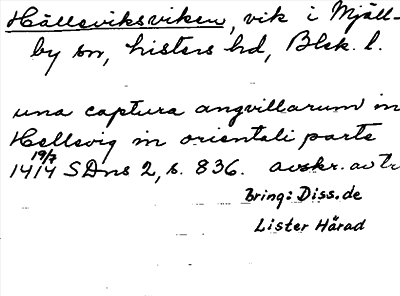 Hällsviksviken, vik i Mjäll-
by sn, Listers hd, Blek. l.
una captura angvillarum in
Hellsvig in orientali parte
19/7
1414 SDns 2, s. 836. avskr. av tr
Bring: Diss. de
Lister Härad